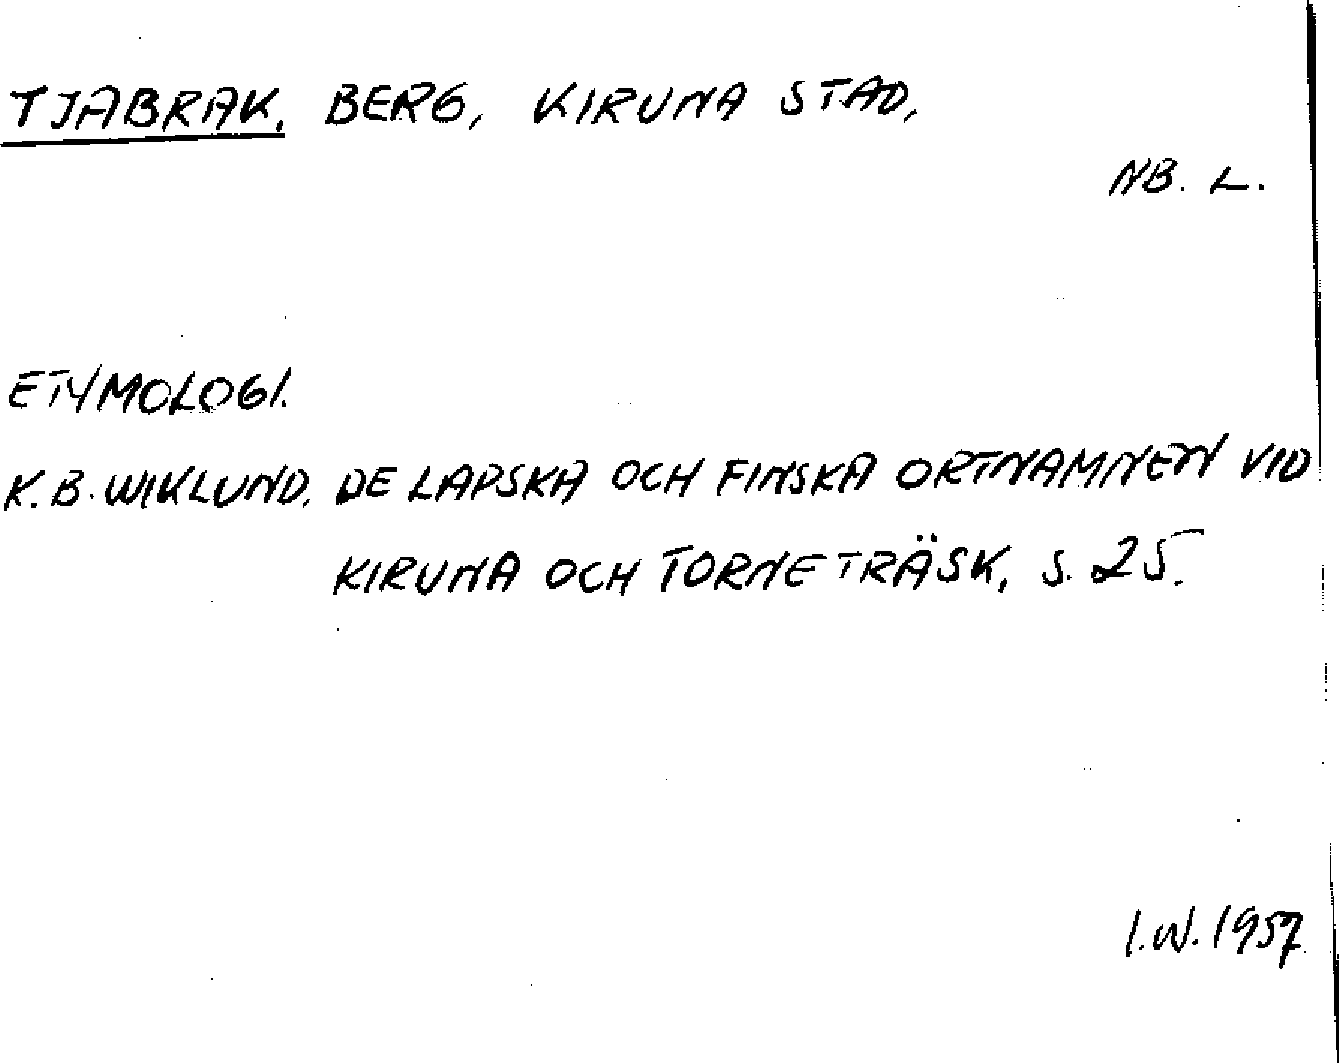 TJABRAK, BERG, KIRUNA STAD,
NB. L.
ETYMOLOGI.
K.B. WIKLUND. DE LAPSKA OCH FINSKA ORTNAMNEN VID
KIRUNA OCH TORNETRÄSK, S. 25.
I.W. 1957